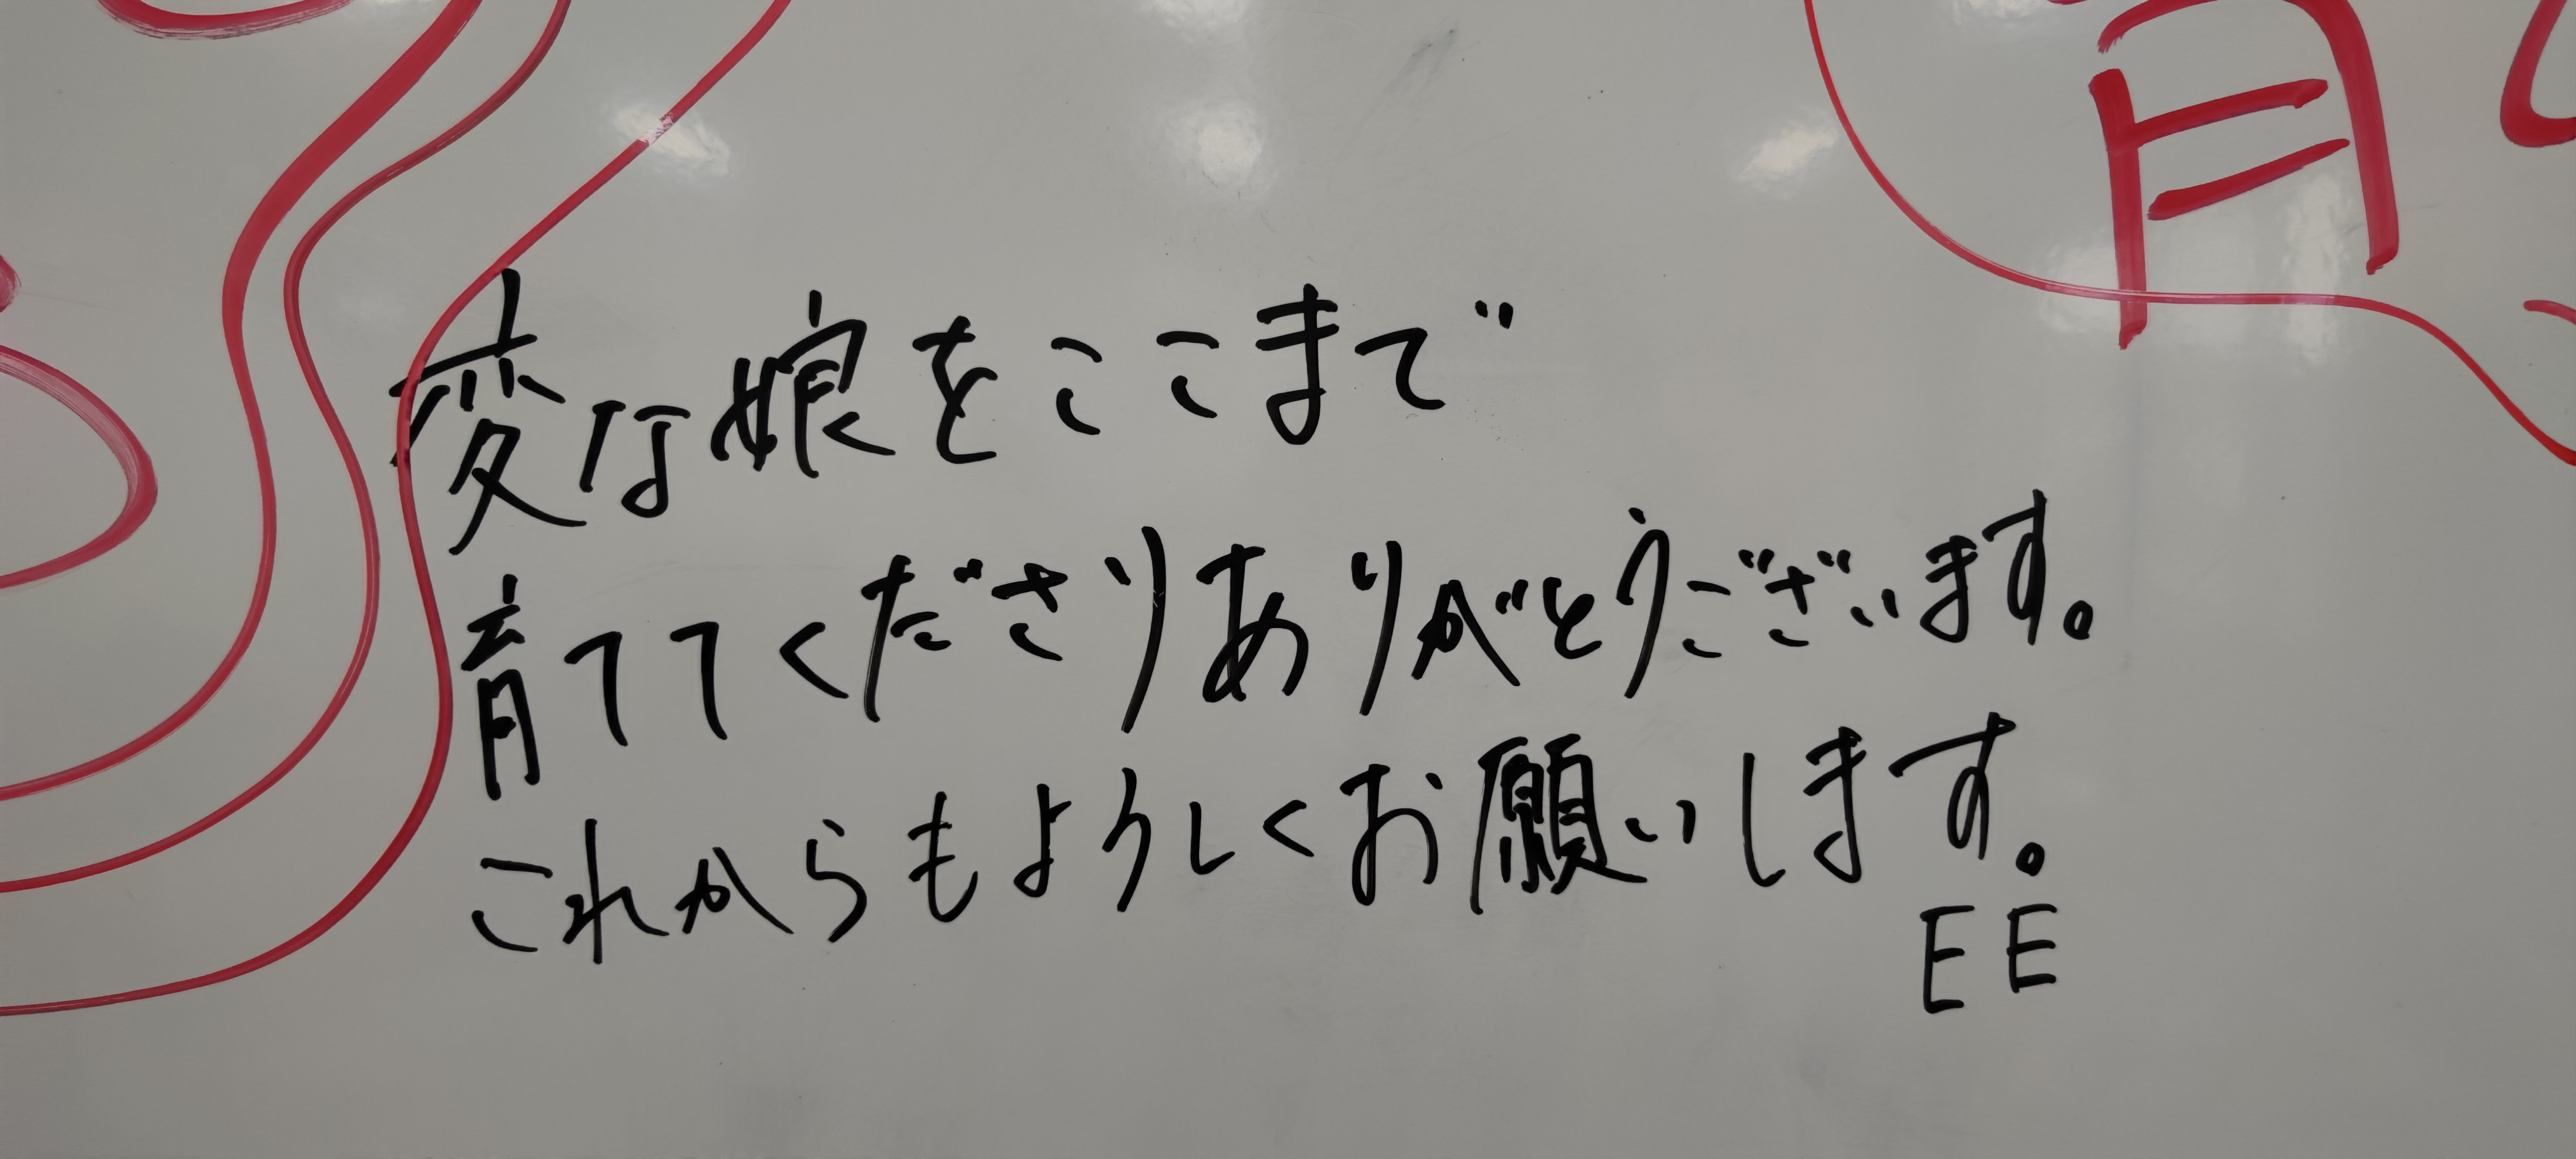 変な娘をここまで
育ててくださりありがとうございます。
これからもよろしくお願いします。
EE